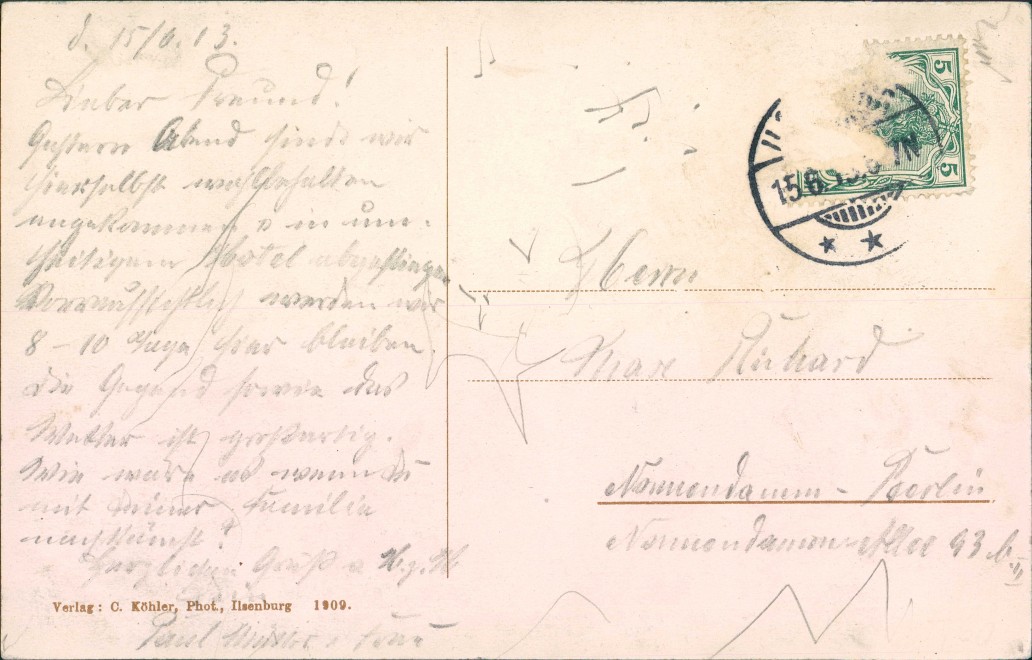 d. 15/6.13.
Lieber Freund!
Gestern Abend sind wir
hierselbst wohlbehalten
angekommen & in um-
Hotel abgestiegen
Voraussichtlich werden wir
8-10 Tage hier bleiben.
Die Gegend sowie das
Wetter ist großartig.
Wie wäre es wenn Du
mit Deiner Familie
nachkämst?
Herzlichen Gruß a. H. z. H.
Dein
Paul u. Frau
Verlag: C. Köhler, Phot., Ilsenburg 1909.
5
5
15.6.13.6-7N
Herrn
Max Richard
Nonnendamm-Berlin
Nonnendamm-Allee 93 b.